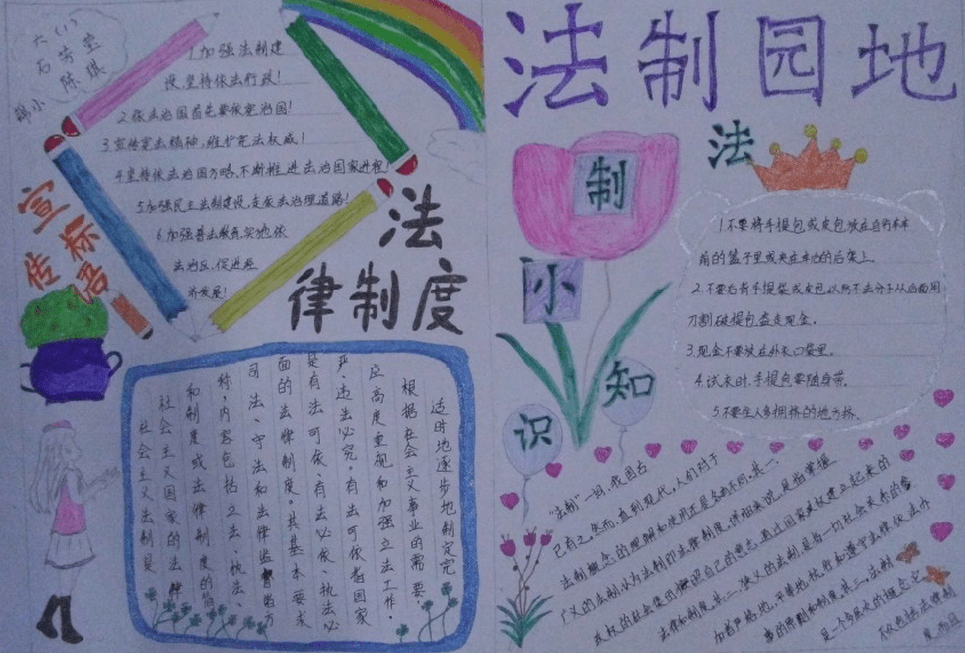 六(1)
石芳堂
陈琪
宣传标语
1.加强法制建
设,坚持依法行政!
2.依法治国首先要依宪治国!
3.宣传宪法精神,维护宪法权威!
4.坚持依法治国方略,不断推进法治国家进程!
5.加强民主法制建设,走依法治理道路!
6.加强普法教育,实施依
法治区,促进经
济发展!
法
律制度
适时地逐步地制定完
根据在社会主义事业的需要,
应高度重视和加强立法工作,
严,违法必究。有法可依者国家
是有法可依,有法必依,执法必
面的法律制度。其基本要求
司法、守法和法律监督各方
称,内容包括立法、执法、
和制度或法律制度的
社会主义国家的法律
社会主义法制是
法制园地
法
制
小
知
识
1.不要将手提包或皮包放在自行车车
前的篮子里或夹在车的后架上。
2.不要右背手提袋或皮包以防不法分子从后面用
刀割破提包盗走现金。
3.现金不要放在外衣口袋里。
4.试衣时,手提包要随身带。
5.不要坐人多拥挤的地方挤。
"法制"一词,我国古
已有之。然而,直到现代,人们对于
法制概念的理解和使用还是各有不同。其一、
广义的法制,认为法制即法律制度。详细来说,是指掌握
政权的社会集团按照自己的意志、通过国家政权建立起来的
法律和制度。其二、狭义的法制,是指一切社会关系的参
加者严格地、平等地执行和遵守法律,依法办
事的原则和制度。其三、法制
是一个多层次的概念,它
不仅包括法律制
度,而且